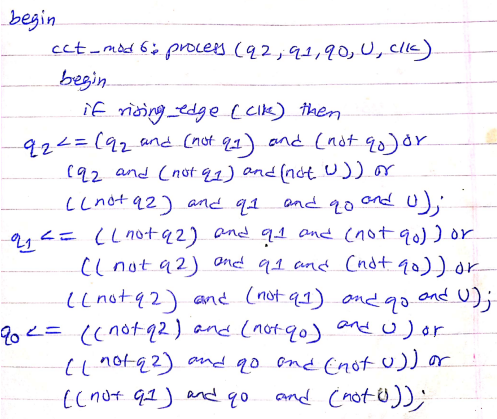 begin
cct_mod6: process (q2, q1, q0, U, clk)
begin
if rising_edge (clk) then
q2 <= (q2 and (not q1) and (not q0) or
(q2 and (not q1) and (not U)) or
((not q2) and q1 and q0 and U);
q1 <= ((not q2) and q1 and (not q0)) or
((not q2) and q1 and (not q0)) or
((not q2) and (not q1) and q0 and U);
q0 <= ((not q2) and (not q0) and U) or
((not q2) and q0 and (not U)) or
((not q1) and q0 and (not U));